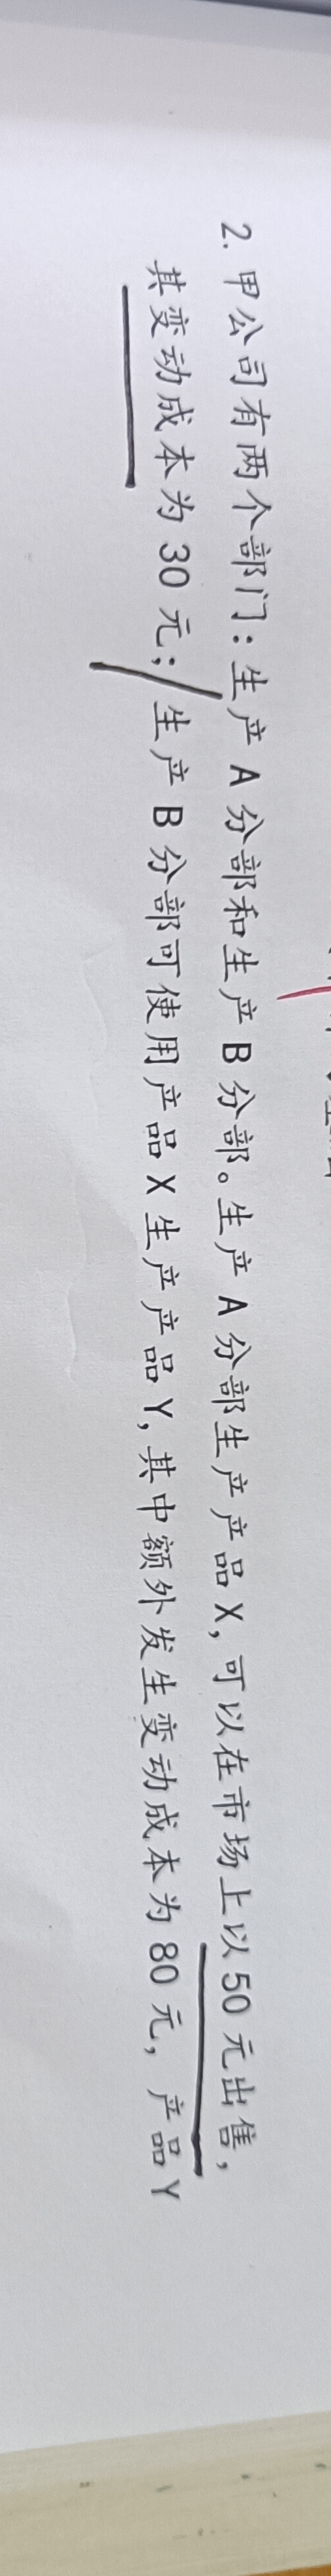 2. 甲公司有两个部门：生产 A 分部和生产 B 分部。生产 A 分部生产产品 X，可以在市场上以 50 元出售，
其变动成本为 30 元；生产 B 分部可使用产品 X 生产产品 Y，其中额外发生变动成本为 80 元，产品 Y